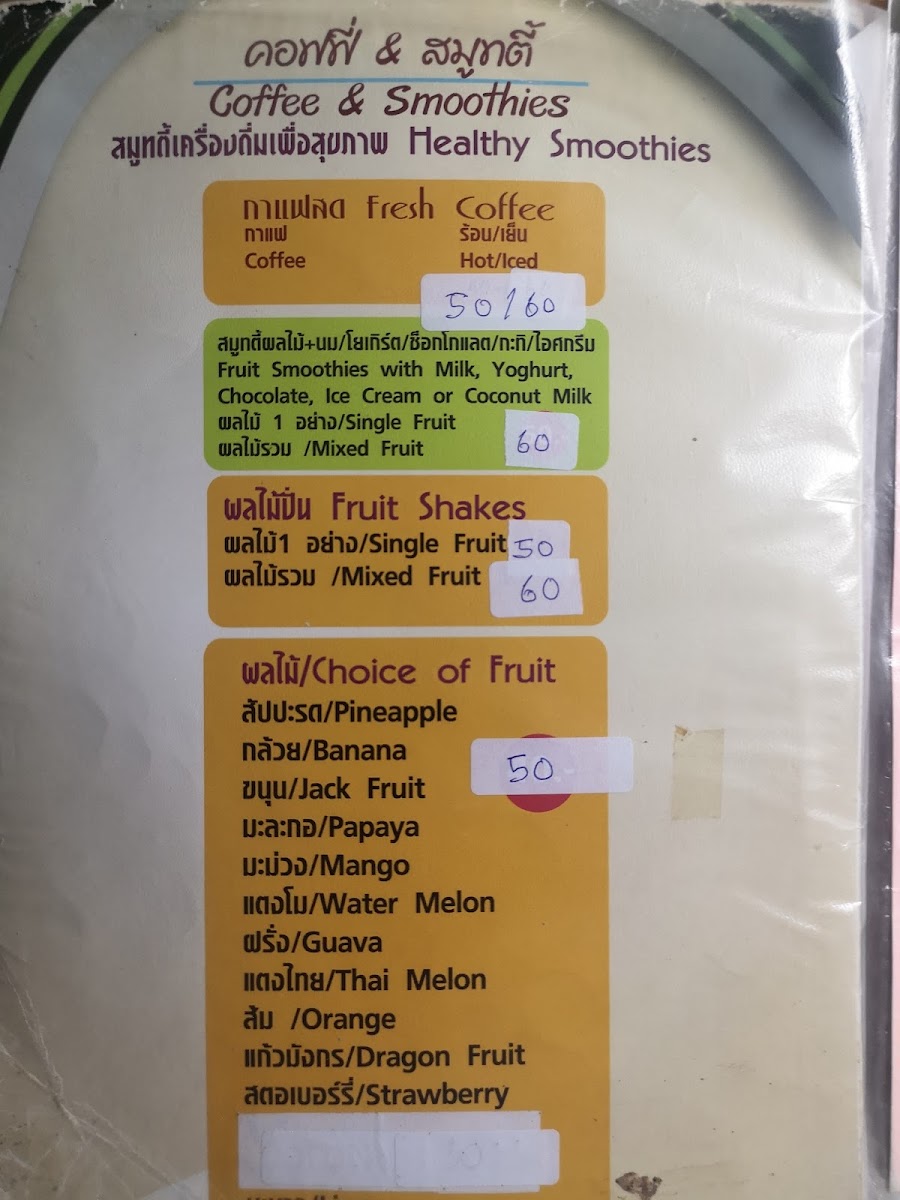 คอฟฟี่ & สมูทตี้
Coffee & Smoothies
สมูทตี้เครื่องดื่มเพื่อสุขภาพ Healthy Smoothies
กาแฟสด Fresh Coffee
กาแฟ ร้อน/เย็น
Coffee Hot/Iced
50/60
สมูทตี้ผลไม้+นม/โยเกิร์ต/ช็อกโกแลต/กะทิ/ไอศกรีม
Fruit Smoothies with Milk, Yoghurt,
Chocolate, Ice Cream or Coconut Milk
ผลไม้ 1 อย่าง/Single Fruit
ผลไม้รวม /Mixed Fruit 60
ผลไม้ปั่น Fruit Shakes
ผลไม้1 อย่าง/Single Fruit 50
ผลไม้รวม /Mixed Fruit 60
ผลไม้/Choice of Fruit
สัปปะรด/Pineapple
กล้วย/Banana 50
ขนุน/Jack Fruit
มะละกอ/Papaya
มะม่วง/Mango
แตงโม/Water Melon
ฝรั่ง/Guava
แตงไทย/Thai Melon
ส้ม /Orange
แก้วมังกร/Dragon Fruit
สตอเบอร์รี่/Strawberry